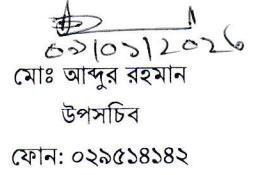 ০১/০১/2026
মোঃ আব্দুর রহমান
উপসচিব
ফোন: ০২৯৫১৪১৪২